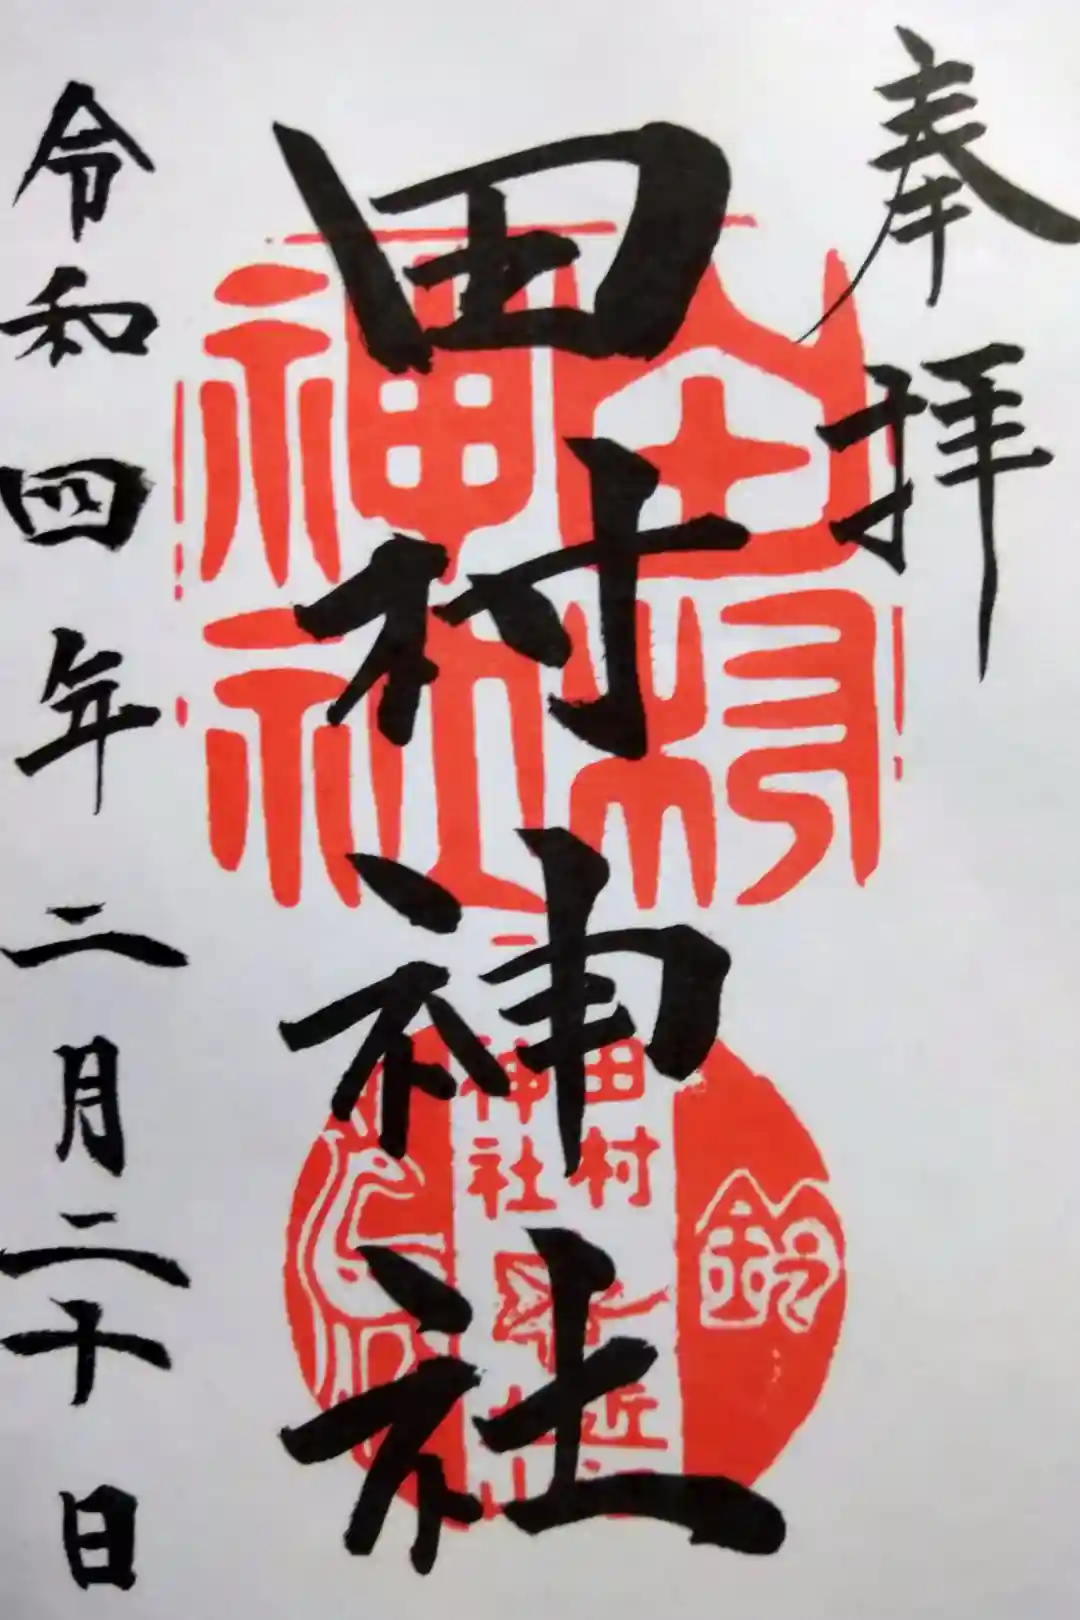 奉拝
田村神社
令和四年二月二十日
田村
神社
田村
神社
鈴
近